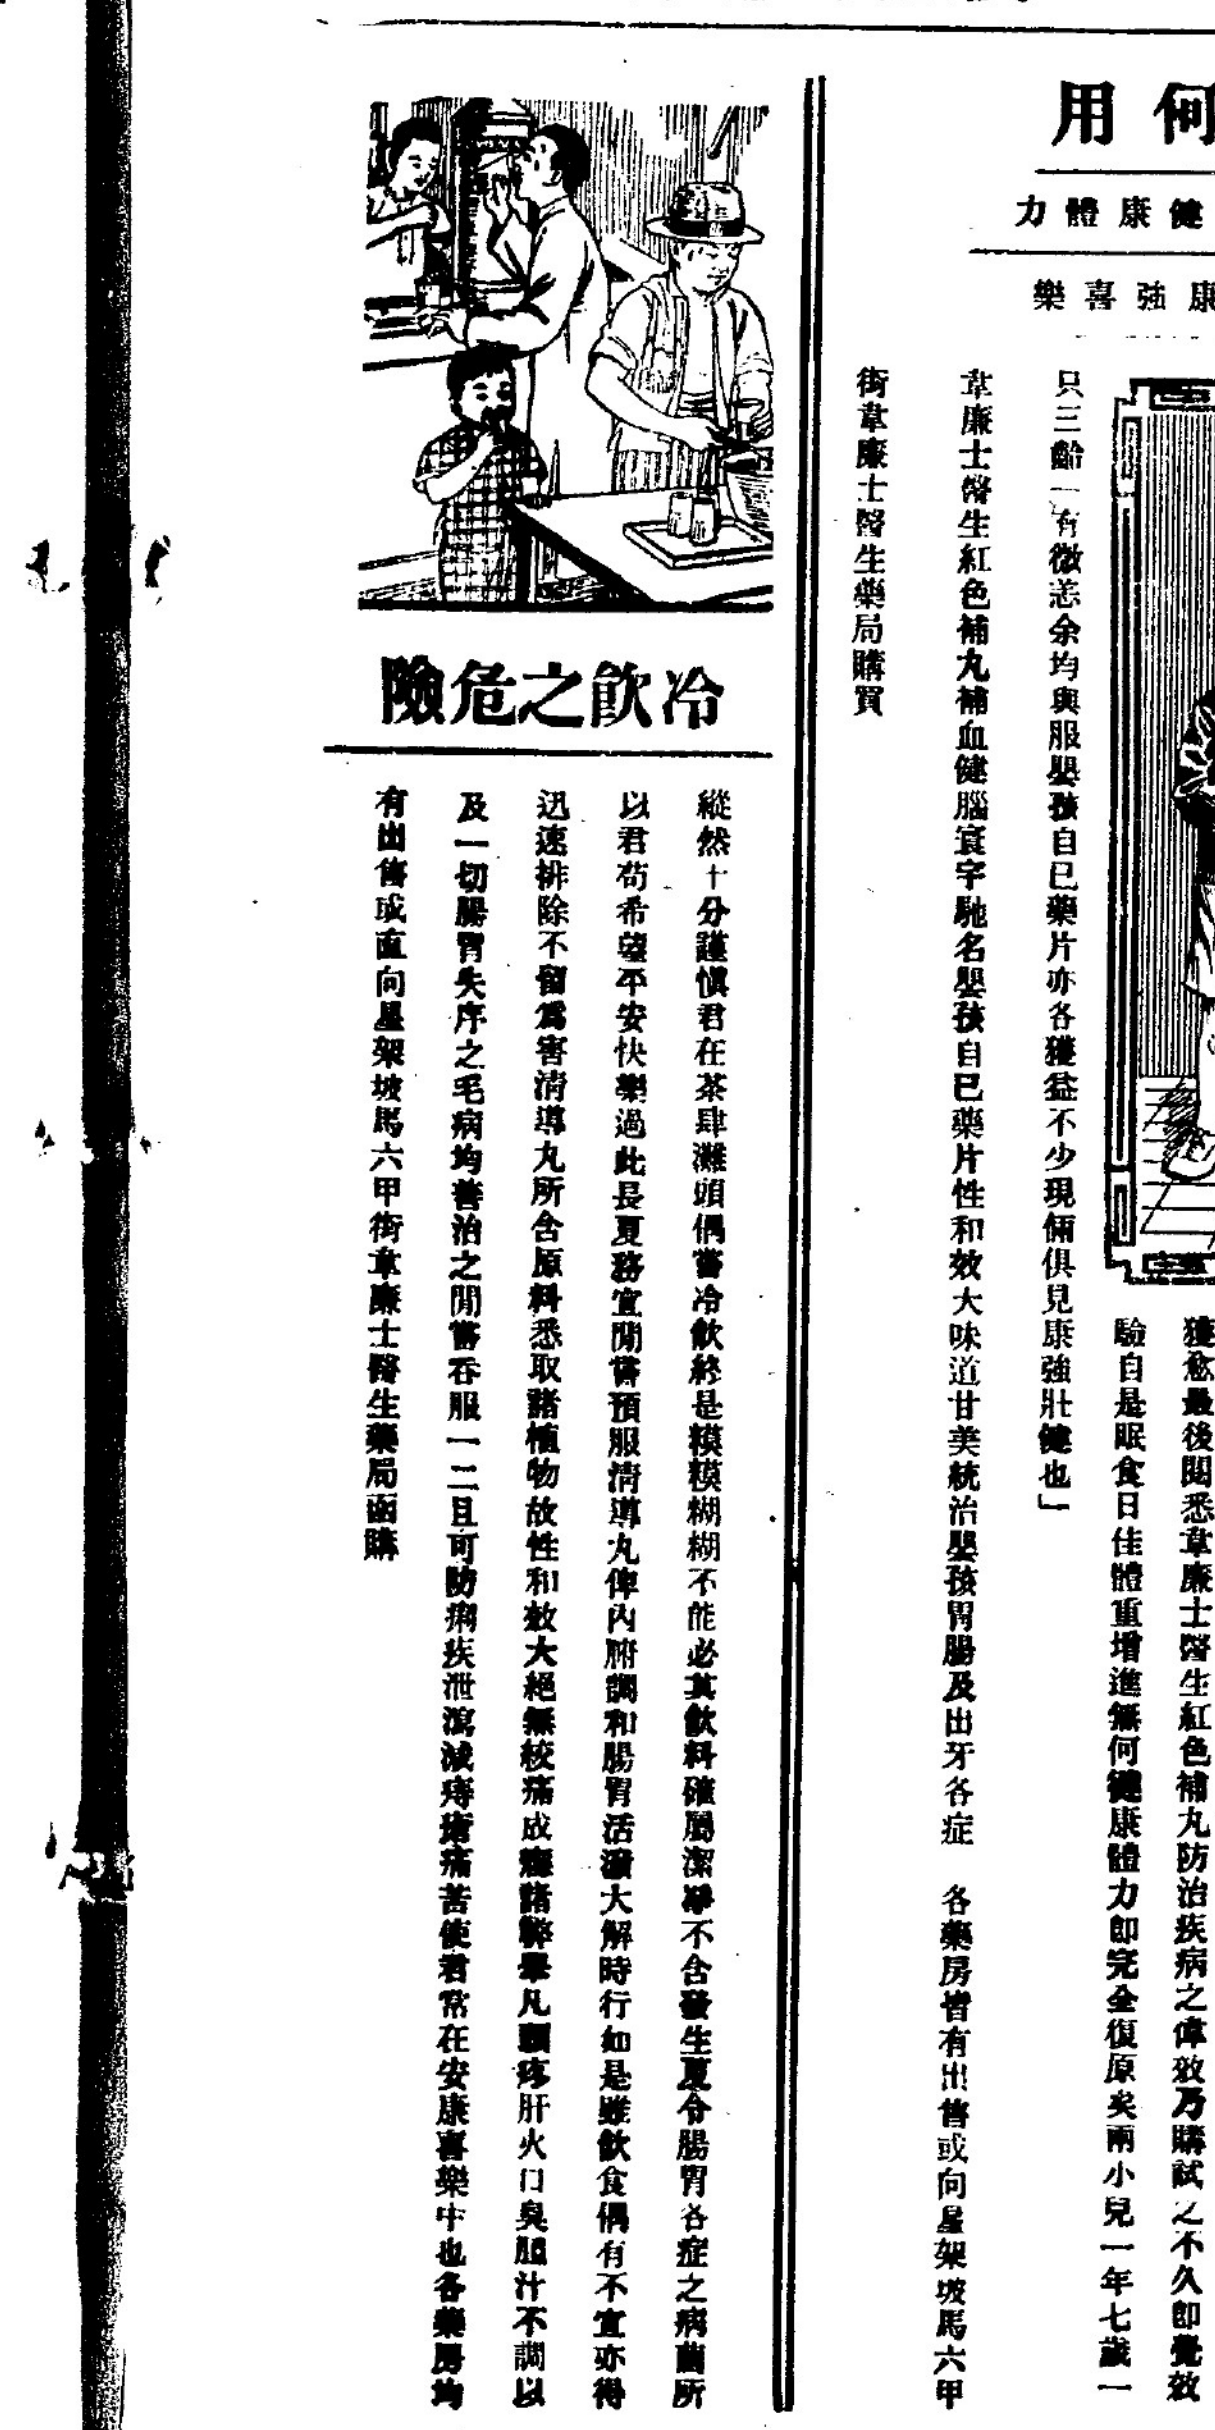 何用
健康體力
康強喜樂
獲愈最後閱悉韋廉士醫生紅色補丸防治疾病之偉效乃購試之不久即覺效
驗自是眠食日佳體重增進無何健康體力即完全復原矣兩小兒一年七歲一
只三齡一有微恙余均與服嬰孩自己藥片亦各獲益不少現倆俱見康強壯健也」
韋廉士醫生紅色補丸補血健腦寰宇馳名嬰孩自己藥片性和效大味道甘美統治嬰孩胃腸及出牙各症 各藥房皆有出售或向星架坡馬六甲
街韋廉士醫生藥局購買
冷飲之危險
縱然十分謹慎君在茶肆灘頭偶嘗冷飲終是糢糢糊糊不能必其飲料確屬潔凈不含發生夏令腸胃各症之病菌所
以君苟希望平安快樂過此長夏務宜閒嘗預服清導丸俾內腑調和腸胃活潑大解時行如是雖飲食偶有不宜亦得
迅速排除不留為害清導丸所含原料悉取諸植物故性和效大絕無絞痛成癮諸弊舉凡頭疼肝火口臭胆汁不調以
及一切腸胃失序之毛病均善治之閒嘗吞服一二且可防痢疾泄瀉減痔瘡痛苦使君常在安康喜樂中也各藥房均
有出售或直向星架坡馬六甲街韋廉士醫生藥局函購